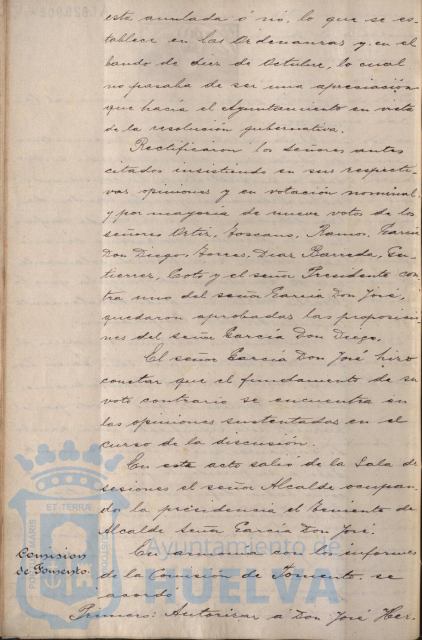 está anulada ó nó, lo que se es-
tablece en las Ordenanzas y en el
bando de diez de Octubre, lo cual
no pasaba de ser una apreciación
que hacía el Ayuntamiento en vista
de la resolución gubernativa.
Rectificaron los señores antes
citados insistiendo en sus respecti-
vas opiniones y en votación nominal
y por mayoría de nueve votos de los
señores Ortiz, Toscano, Ramos, García
Don Diego, Torres, Diaz Barreda, Gu-
tierrez, Coto y el señor Presidente con-
tra uno del señor García Don José,
quedaron aprobadas las proposicio-
nes del señor García Don Diego.
El señor García Don José hizo
constar que el fundamento de su
voto contrario se encuentra en
las opiniones sustentadas en el
curso de la discusión.
En este acto salió de la Sala de
sesiones el señor Alcalde ocupan-
do la presidencia el Teniente de
Alcalde señor García Don José.
Comision
de Fomento.
De acuerdo con los informes
de la Comisión de Fomento, se
acordó:
Primero: Autorizar á Don José Her-
Ayuntamiento de
HUELVA
PORTUS MARIS
ET TERRÆ
CUSTODIA